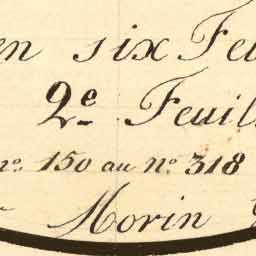 en six Fe
2e Feuil
no. 150 au No. 318
Morin